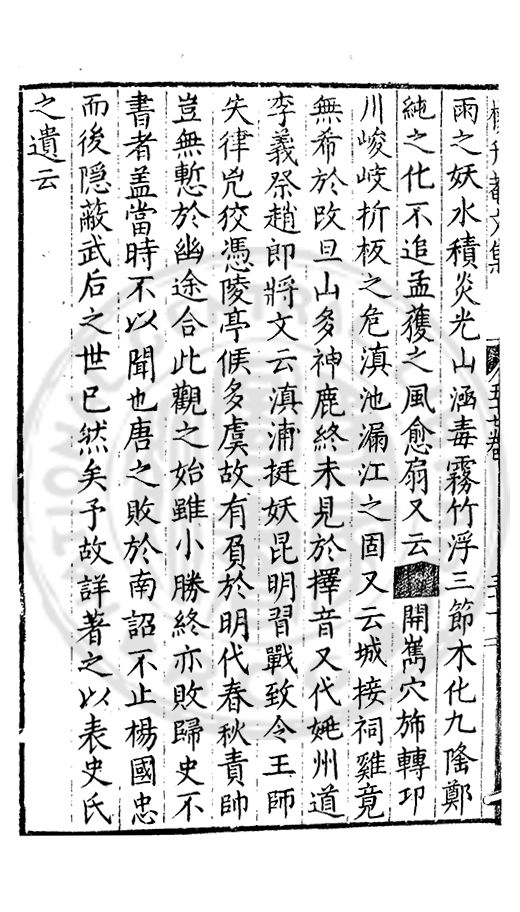 雨之妖水積炎光山涵毒霧竹浮三節木化九隆鄭
純之化不追孟獲之風愈扇又云開嶲穴斾轉卭
川峻岐折板之危滇池漏江之固又云城接祠雞竟
無希於改旦山多神鹿終未見於擇音又代姚州道
李義祭趙郎將文云滇浦挺妖昆明習戰致令王師
失律兇狡憑陵亭候多虞故有負於明代春秋責帥
豈無慙於幽途合此觀之始雖小勝終亦敗歸史不
書者盖當時不以聞也唐之敗於南詔不止楊國忠
而後隐蔽武后之世已然矣予故詳著之以表史氏
之遺云
五十七卷